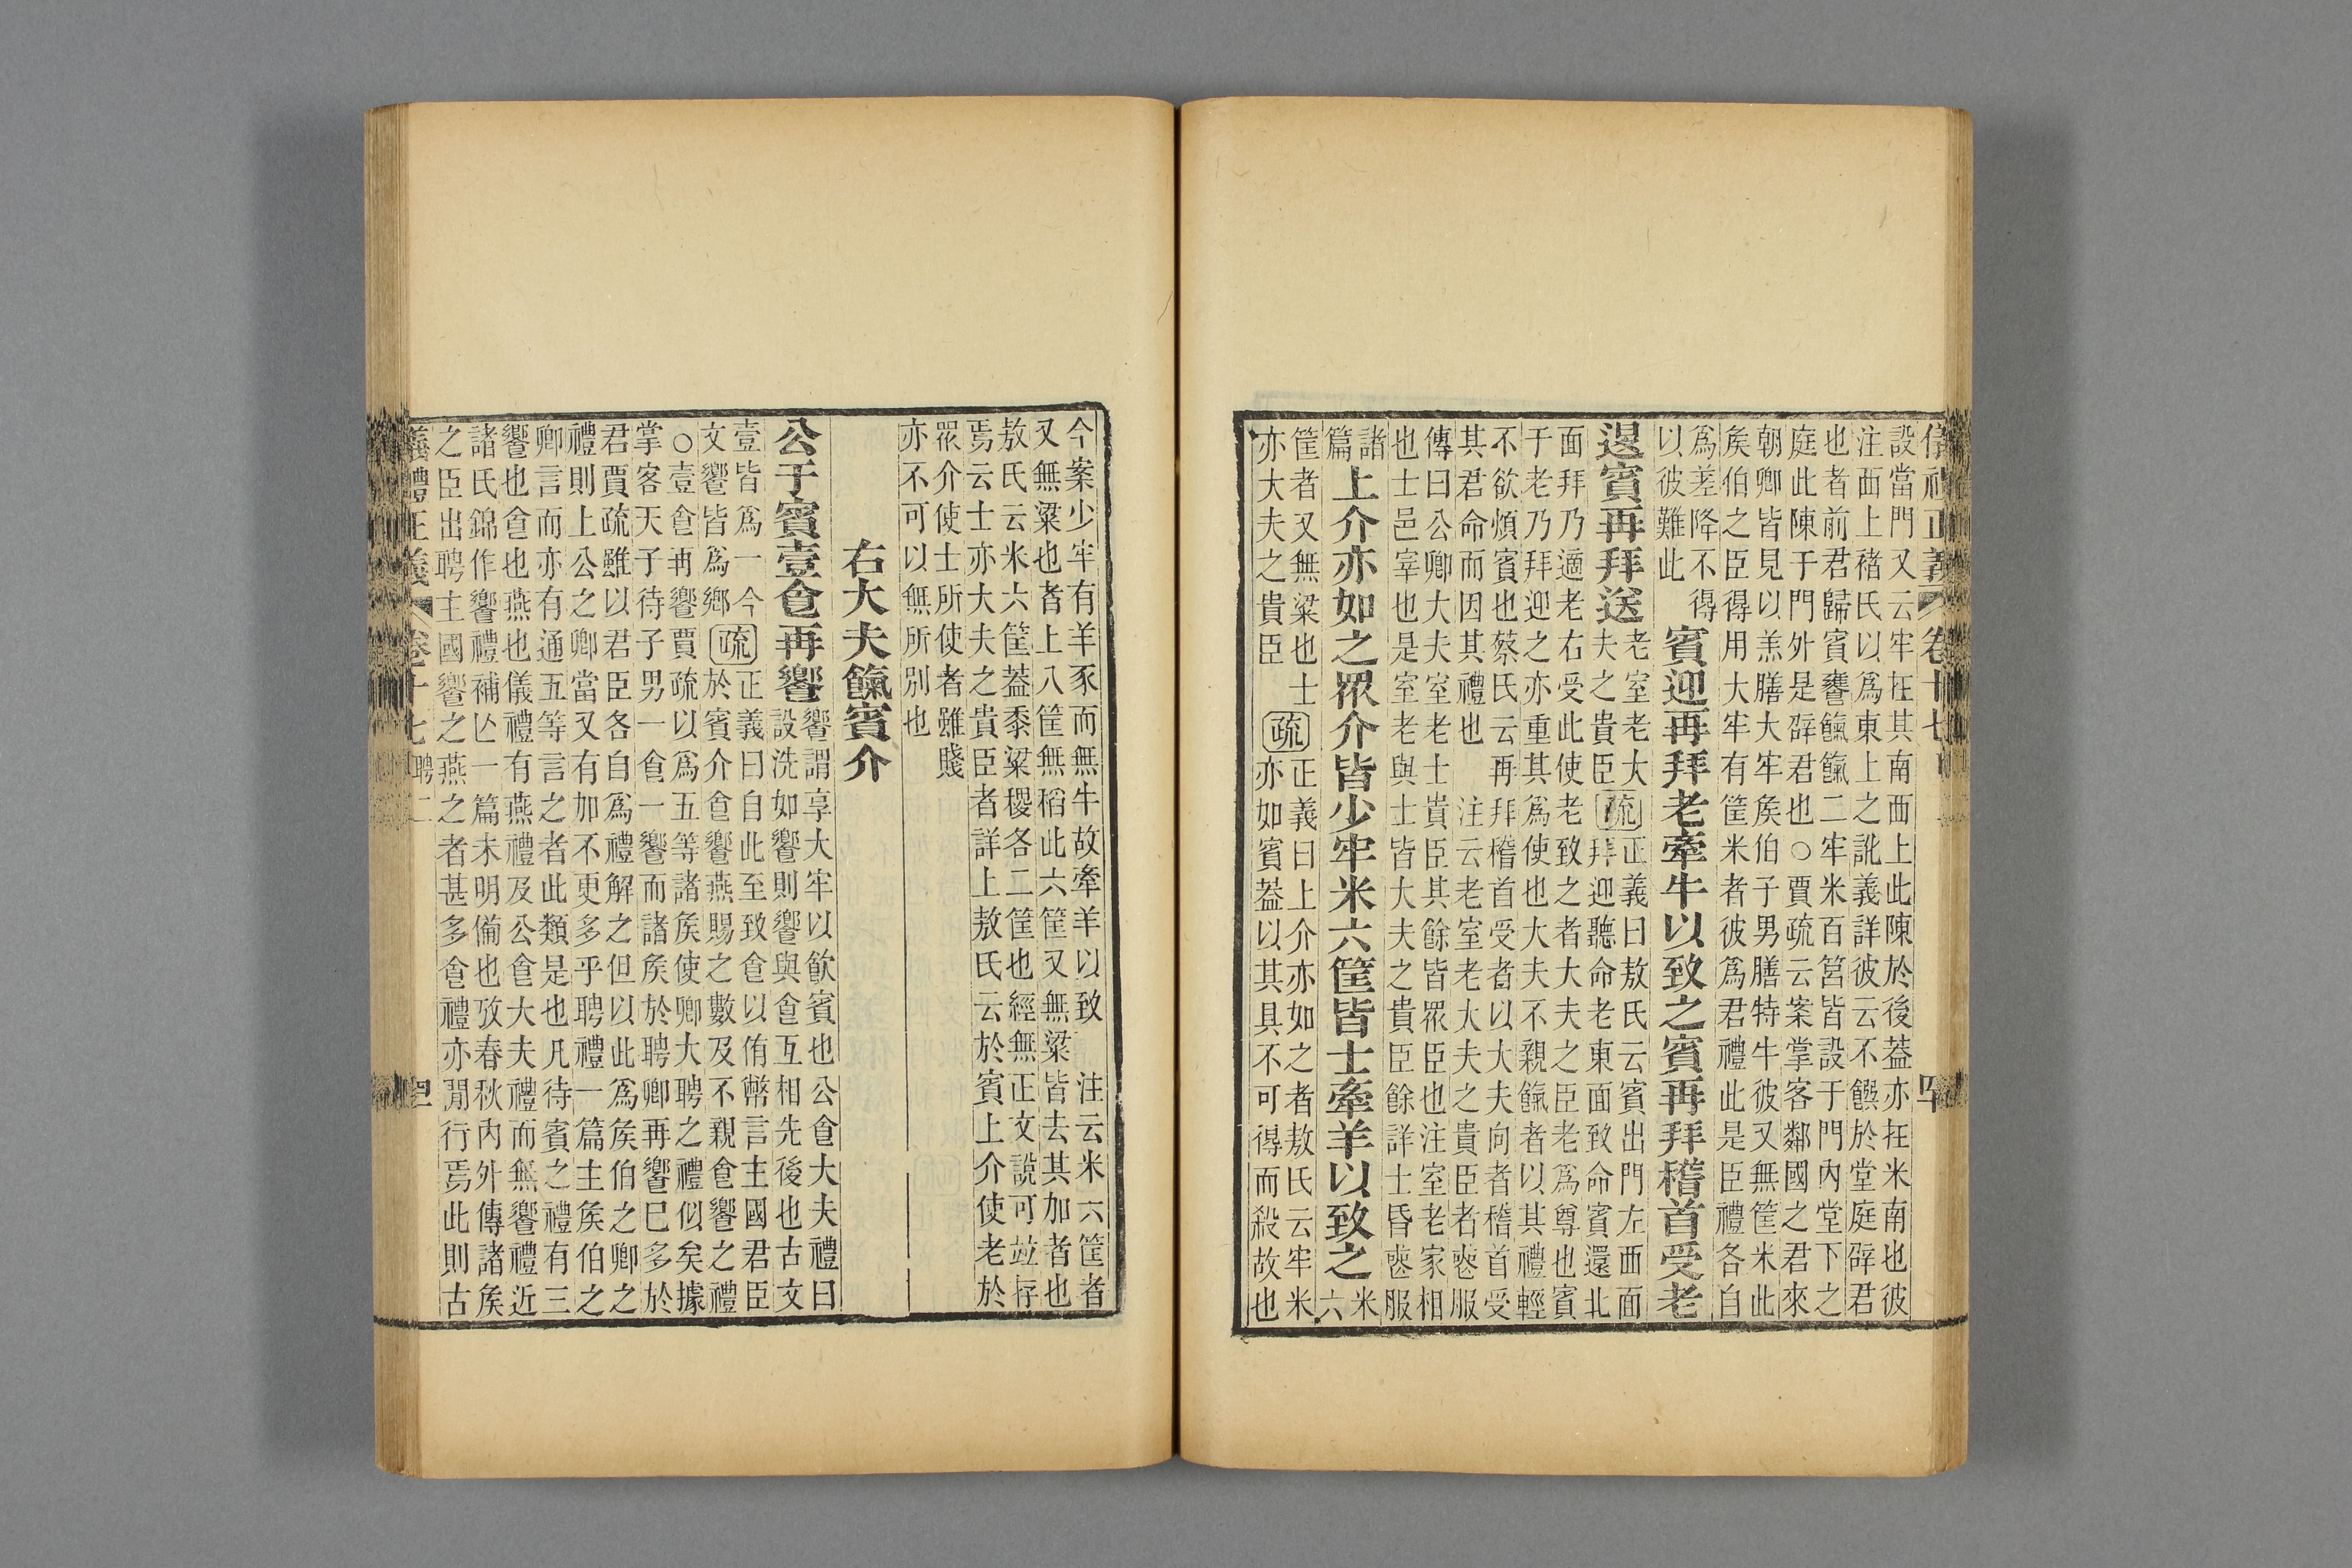 儀禮正義 卷十七 四十
設當門又云牢在其南西上此陳於後葢亦在米南也彼
注西上褚氏以爲東上之訛義詳彼云不饌於堂庭辟君
也者前君歸賓饔餼餼二牢米百筥皆設于門內堂下之
庭此陳于門外是辟君也○賈疏云案掌客鄰國之君來
朝卿皆見以羔膳大牢矦伯子男膳特牛彼又無筐米此
矦伯之臣得用大牢有筐米者彼爲君禮此是臣禮各自
爲差降不得
以彼難此
賓迎再拜老牽牛以致之賓再拜稽首受老
退賓再拜送
老室老大
夫之貴臣
疏
正義曰敖氏云賓出門左西面
拜迎聽命老東面致命賓還北
面拜乃適老右受此使老致之者大夫之臣老爲尊也賓
于老乃拜迎之亦重其爲使也大夫不親餼者以其禮輕
不欲煩賓也蔡氏云再拜稽首受者以大夫向者稽首受
其君命而因其禮也 注云老室老大夫之貴臣者喪服
傳曰公卿大夫室老士貴臣其餘皆眾臣也注室老家相
也士邑宰也是室老與士皆大夫之貴臣餘詳士昏喪服
諸
篇
上介亦如之眾介皆少牢米六筐皆士牽羊以致之
米
六
筐者又無粱也士
亦大夫之貴臣
疏
正義曰上介亦如之者敖氏云牢米
亦如賓葢以其具不可得而殺故也
今案少牢有羊豕而無牛故牽羊以致 注云米六筐者
又無粱也者上八筐無稻此六筐又無粱皆去其加者也
敖氏云米六筐葢黍粱稷各二筐也經無正文說可竝存
焉云士亦大夫之貴臣者詳上敖氏云於賓上介使老於
眾介使士所使者雖賤
亦不可以無所別也
右大夫餼賓介
公于賓壹食再饗
饗謂享大牢以飲賓也公食大夫禮曰
設洗如饗則饗與食互相先後也古文
壹皆爲一今
文饗皆爲鄉
疏
正義曰自此至致食以侑幣言主國君臣
於賓介食饗燕賜之數及不親食饗之禮
○壹食再饗賈疏以爲五等諸矦使卿大聘之禮似矣據
掌客天子待子男一食一饗而諸矦於聘卿再饗巳多於
君賈疏雖以君臣各自爲禮解之但以此爲矦伯之卿之
禮則上公之卿當又有加不更多乎聘禮一篇主矦伯之
卿言而亦有通五等言之者此類是也凡待賓之禮有三
饗也食也燕也儀禮有燕禮及公食大夫禮而無饗禮近
諸氏錦作饗禮補亾一篇未明備也攷春秋內外傳諸矦
之臣出聘主國饗之燕之者甚多食禮亦閒行焉此則古
儀禮正義 卷十七 聘二